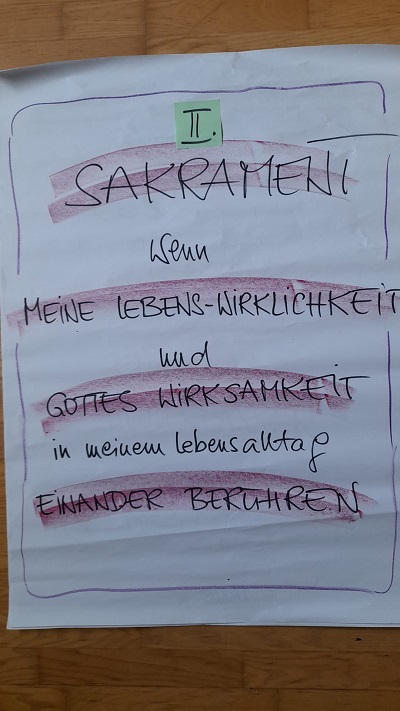 II.
SAKRAMENT
Wenn
MEINE LEBENS-WIRKLICHKEIT
und
GOTTES WIRKSAMKEIT
in meinem Lebensalltag
EINANDER BERÜHREN